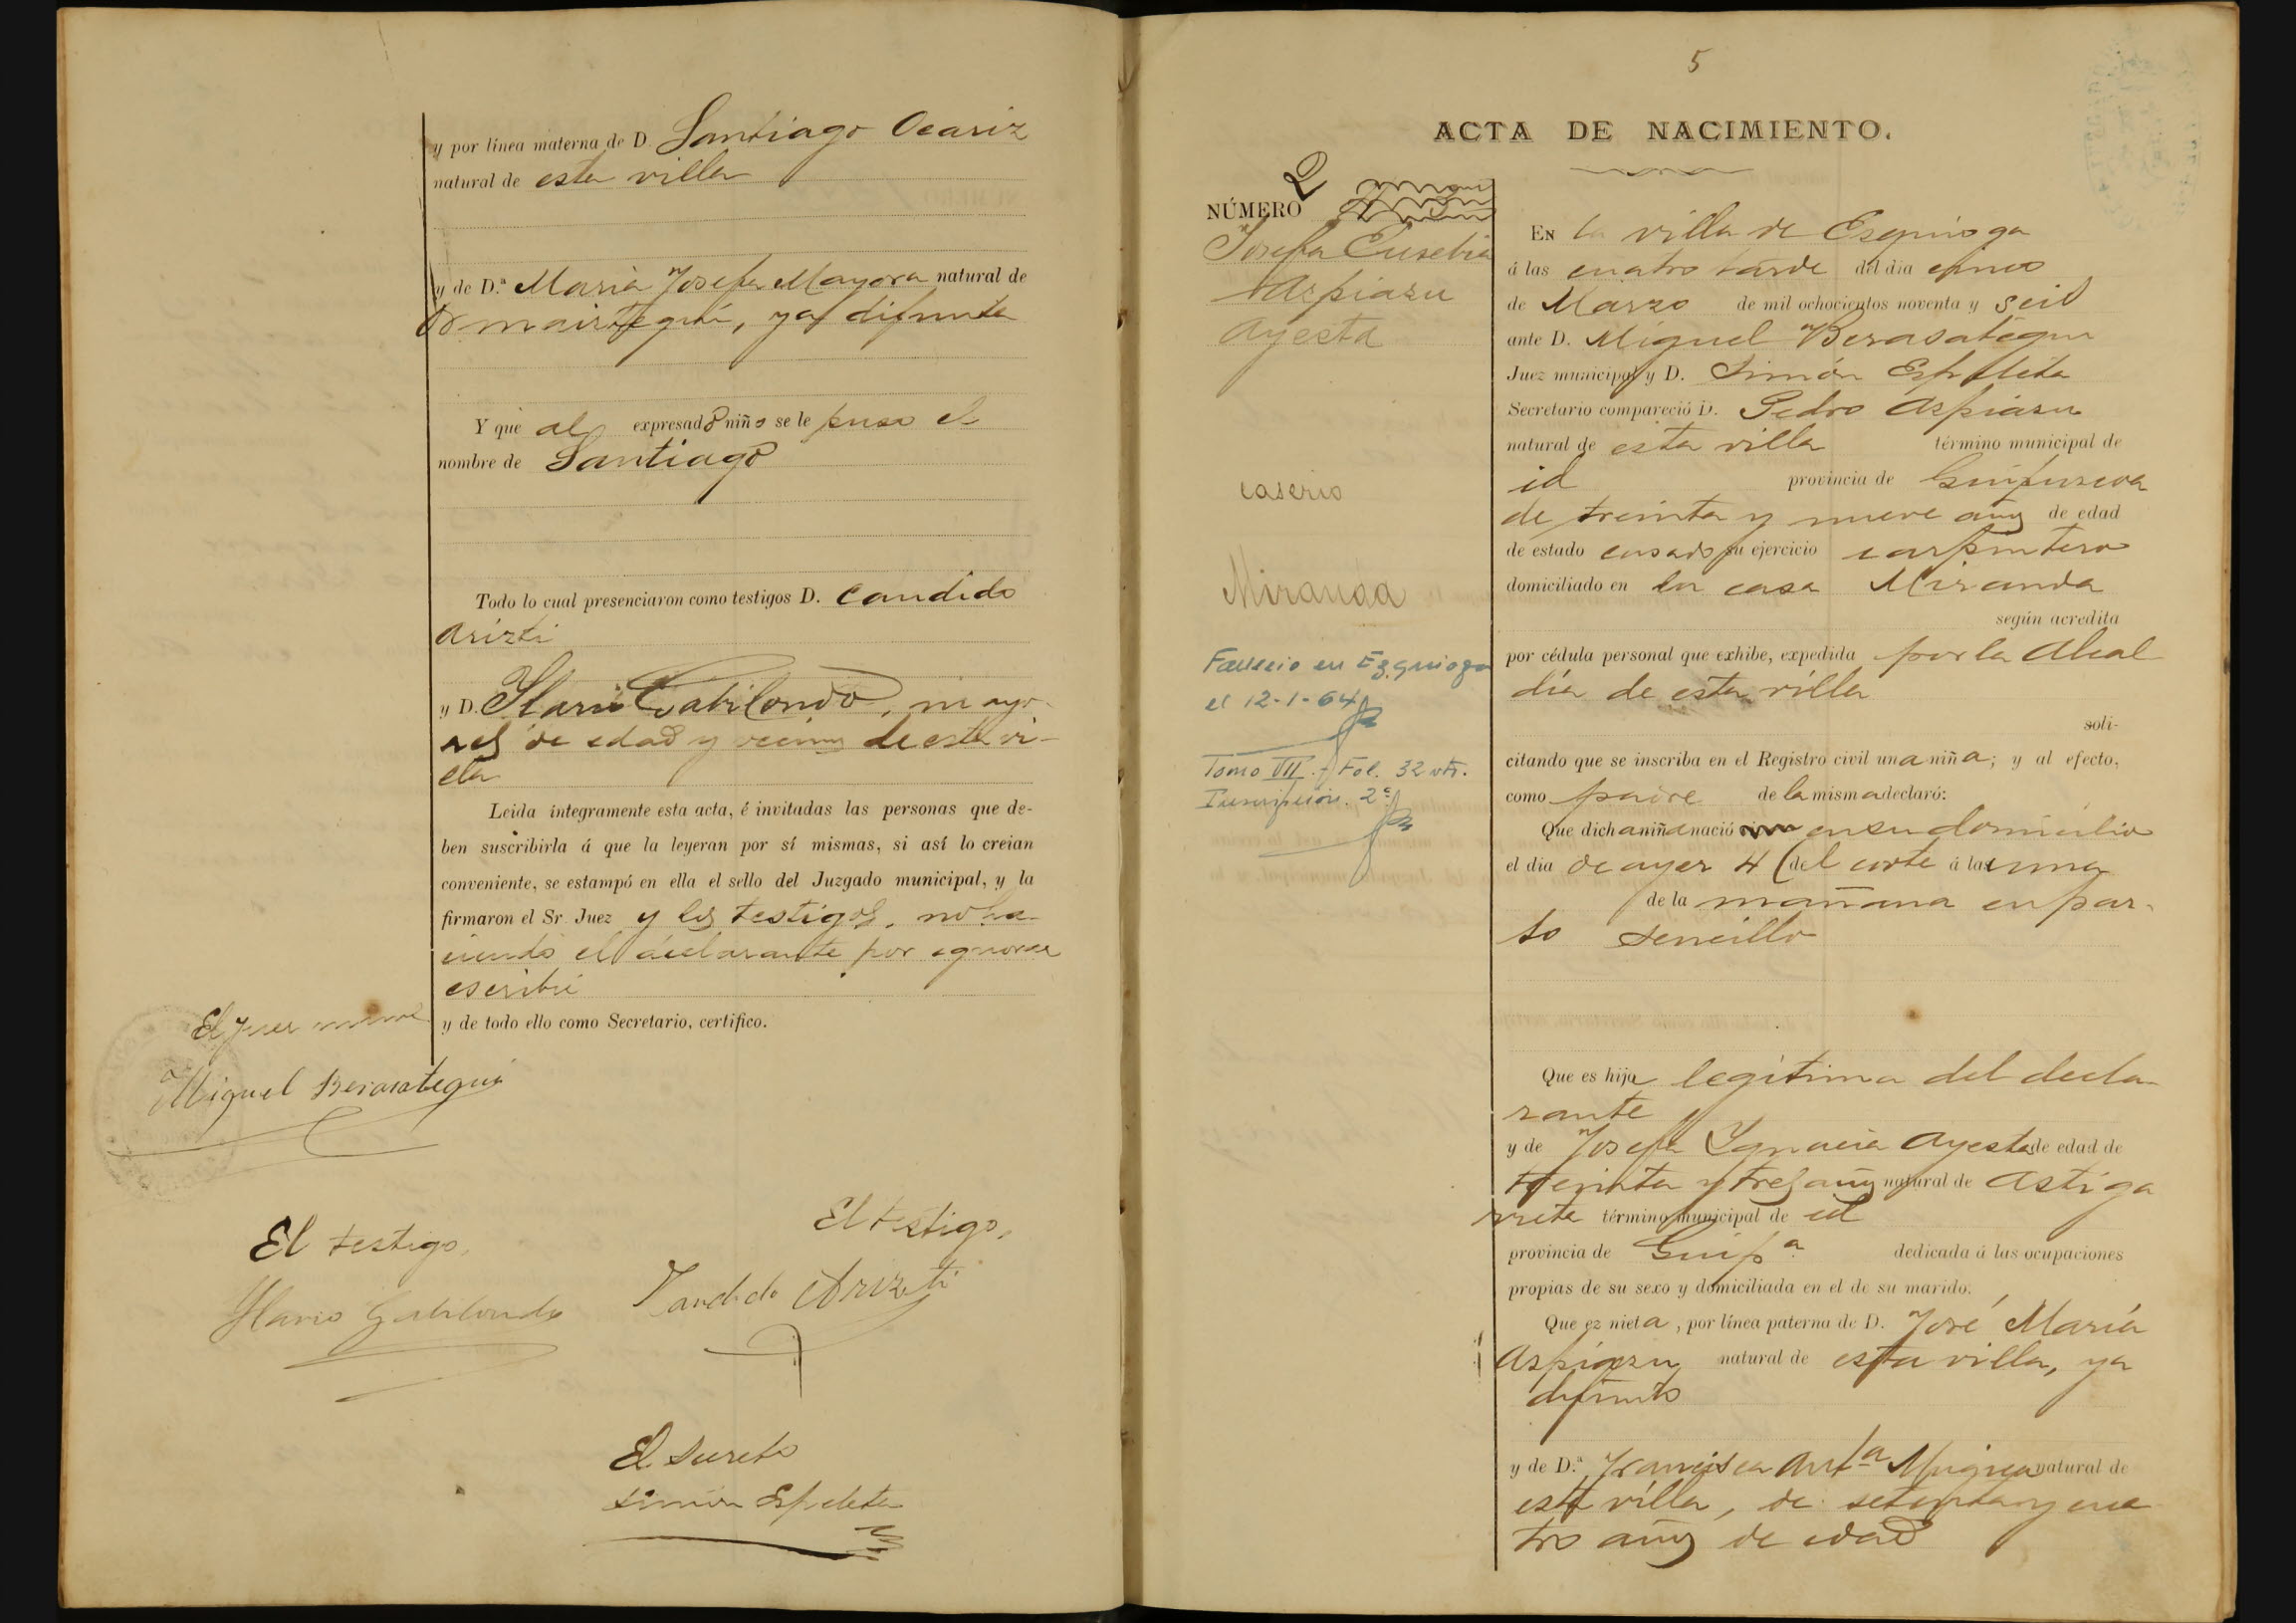 y por línea materna de D. Santiago Ocariz
natural de esta villa
y de D.ª Maria Josefa Mayora natural de
Ormaiztegui, ya difunta
Y que al expresado niño se le puso el
nombre de Santiago
Todo lo cual presenciaron como testigos D. Candido
Arizti
y D. Ilario Gabilondo, mayo-
res de edad y vecinos de esta vi-
lla
Leida íntegramente esta acta, é invitadas las personas que de-
ben suscribirla á que la leyeran por sí mismas, si así lo creian
conveniente, se estampó en ella el sello del Juzgado municipal, y la
firmaron el Sr. Juez y los testigos, no ha-
ciendo el declarante por ignorar
escribir
y de todo ello como Secretario, certifico.
El Juez
Miguel Berasategui
El testigo,
Ilario Gabilondo
El testigo,
Candido Arizti
El Secreto
Simon Espeleta
5
ACTA DE NACIMIENTO.
NÚMERO 2
Josefa Eusebia
Aspiasu
Ayesta
caserio
Miranda
Fallecio en Ezquioga
el 12-1-64
Tomo VII. - Fol. 32 vto.
Inscripción. 2ª
En la villa de Esquioga
á las cuatro tarde del dia cinco
de Marzo de mil ochocientos noventa y seis
ante D. Miguel Berasategui
Juez municipal y D. Simón Espeleta
Secretario compareció D. Pedro Aspiasu
natural de esta villa término municipal de
id provincia de Guipuscoa
de treinta y nueve años de edad
de estado casado su ejercicio carpintero
domiciliado en la casa Miranda
según acredita
por cédula personal que exhibe, expedida por la Alcal
día de esta villa
soli-
citando que se inscriba en el Registro civil una niña; y al efecto,
como padre de la misma declaró:
Que dicha niña nació en su domicilio
el dia de ayer 4 del corte á las una
de la mañana en par-
to sencillo
Que es hija legítima del decla-
rante
y de Josefa Ygnacia Ayesta de edad de
treinta y tres años natural de Astiga
rreta término municipal de id
provincia de Guipª dedicada á las ocupaciones
propias de su sexo y domiciliada en el de su marido.
Que ez nieta, por línea paterna de D. José María
Aspiasu natural de esta villa, ya
difunto
y de D.ª Francisca Antª Mugica natural de
esta villa, de setenta y cua
tro años de edad